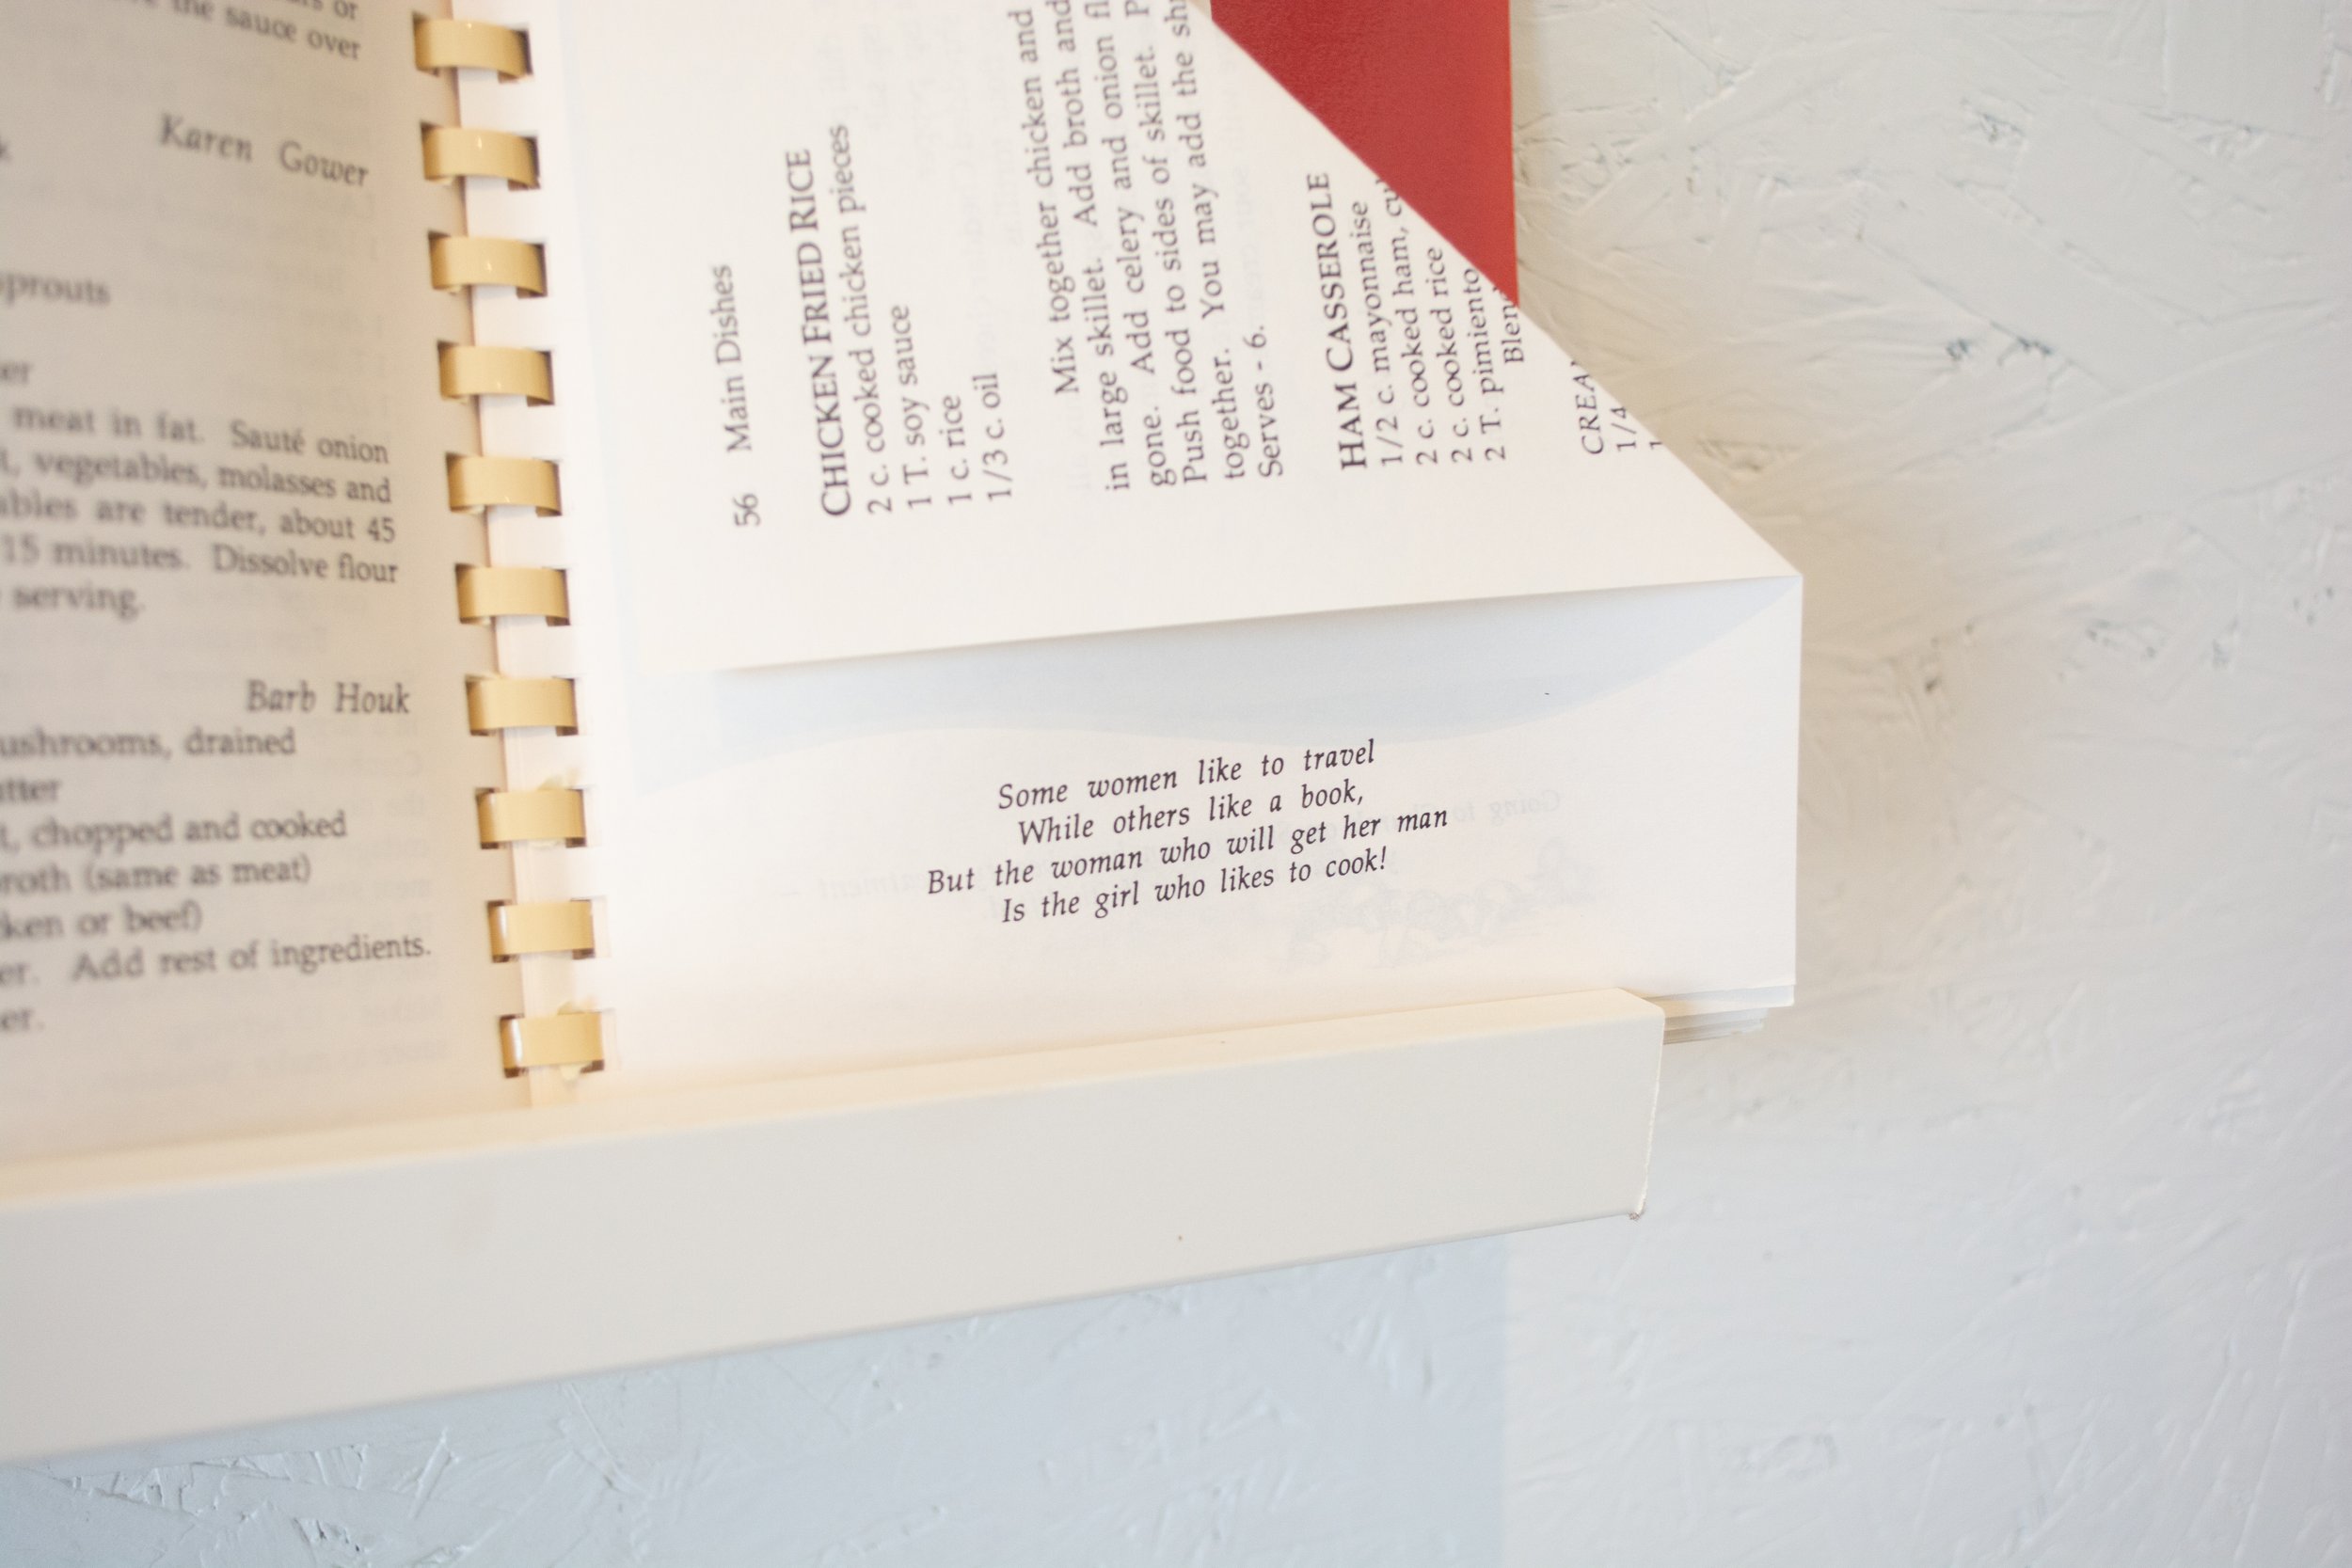 the sauce over
Karen Gower
sprouts
meat in fat. Sauté onion
vegetables, molasses and
are tender, about 45
15 minutes. Dissolve flour
serving.
Barb Houk
drained
chopped and cooked
(same as meat)
or beef)
Add rest of ingredients.
56 Main Dishes
CHICKEN FRIED RICE
2 c. cooked chicken pieces
1 T. soy sauce
1 c. rice
1/3 c. oil
Mix together chicken and
in large skillet. Add broth and
gone. Add celery and onion
Push food to sides of skillet.
together. You may add the
Serves - 6.
HAM CASSEROLE
1/2 c. mayonnaise
2 c. cooked ham,
2 c. cooked rice
2 T. pimiento
Blen
CREA
1/4
Some women like to travel
While others like a book,
But the woman who will get her man
Is the girl who likes to cook!